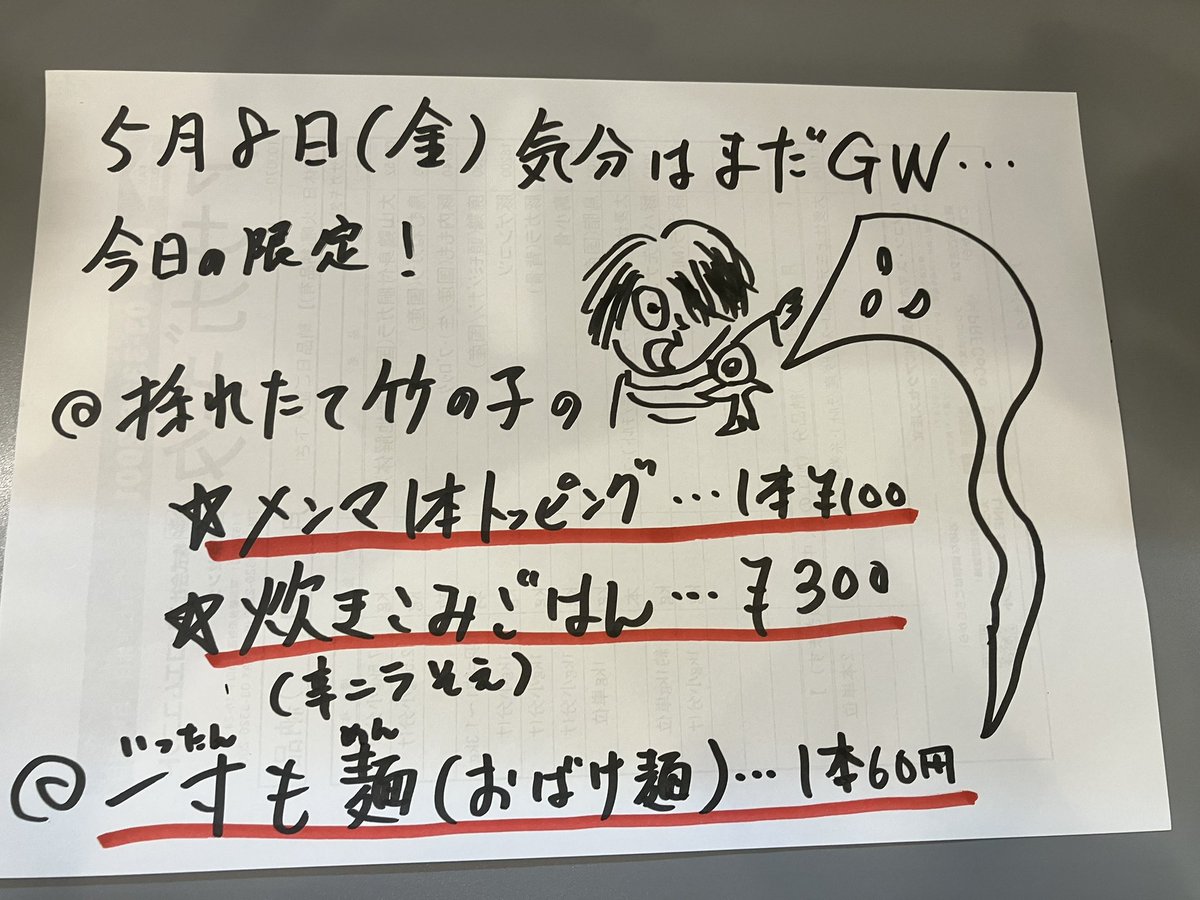 5月8日(金)気分はまだGW…
今日の限定!
@採れたて竹の子の
☆メンマ1本トッピング…1本¥100
☆炊きこみごはん…¥300
(辛ニラそえ)
いったん めん
@一寸も麺(おばけ麺)…1本60円